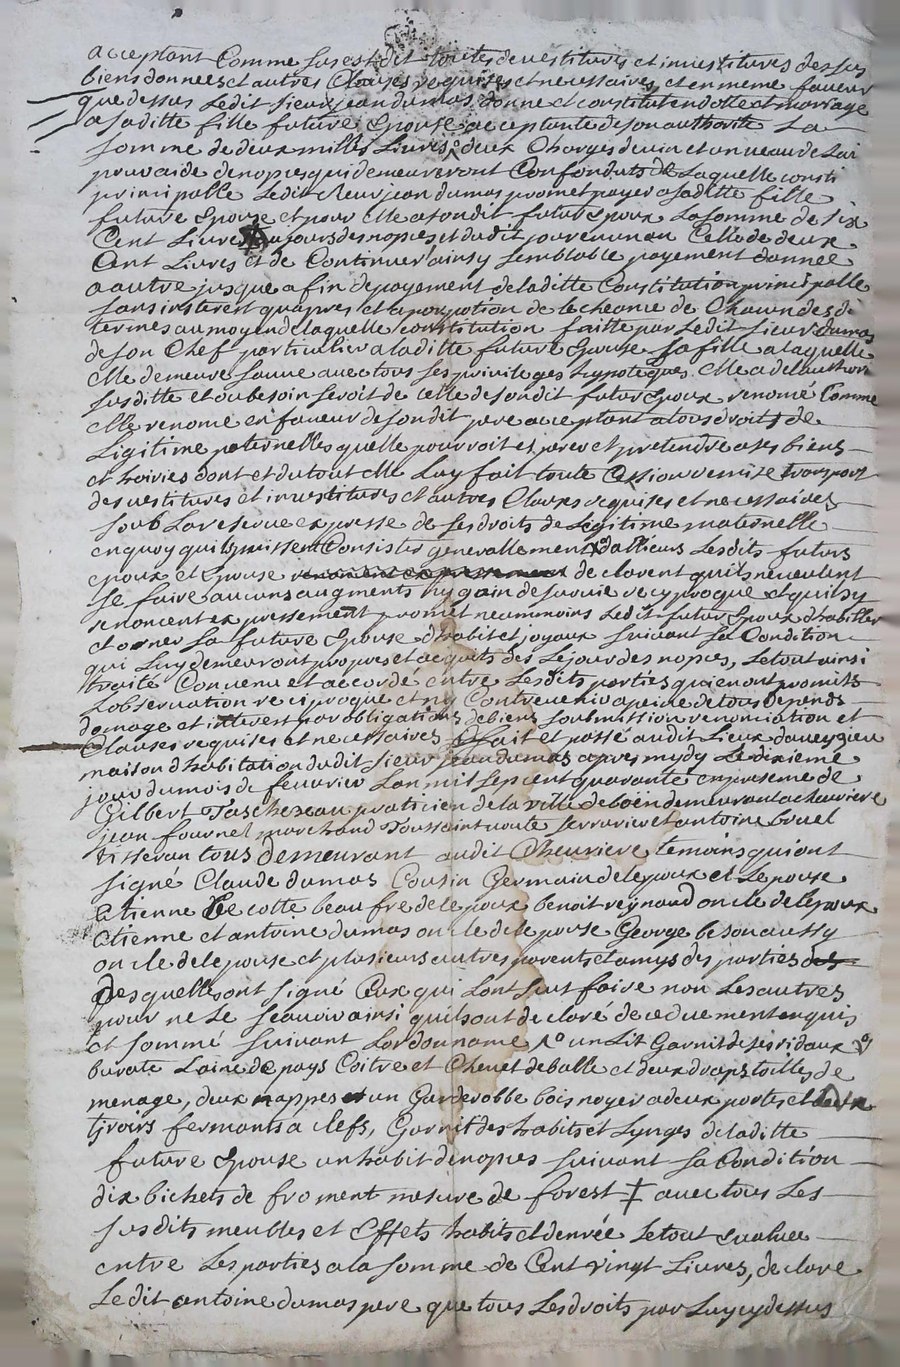 acceptant Comme susest dit toutes devestitures et investitures des sus
biens donnees et autres Clauses requises et necessaires, et en meme faveur
que dessus Ledit sieur jean dumas donne et constitut en dotte et mariage
a saditte fille future Epouse acceptante de son authorité La
somme de deux milles Livres deux Charges de vin et un veau de Lai
pour aide de nopces qui demeureront Confonduts de Laquelle consti
principalle Ledit sieur jean dumas promet payer a saditte fille
future Epouse et pour elle a sondit futur Epoux La somme de six
Cent Livres au jour des nopces et dudit jour en un an Celle de deux
Cent Livres et de Continuer ainsy semblable payement d'année
a autre jusque a fin de payement de laditte Constitution principalle
sans interest qu'apres et a porpotion de l'echeance de Chacun desdi
termes au moyen de laquelle constitution faitte par Ledit sieur dumas
de son Chef particulier a laditte future Epouse sa fille a laquelle
elle demeure sauve avec tous ses privileges hypoteques. Elle a de l'authori
susditte et ou besoin seroit de celle de sondit futur Epoux renomé Comme
elle renome en faveur de sondit pere acceptant a tous droits de
Ligitime paternelles quelle pourroit esperer et pretendre a ses biens
et hoiries dont et du tout elle Luy fait toute Cession remise transport
devestitures et investitures et autres Clauses requises et necessaires
soub La reserve expresse de ses droits de Legitime maternelle
en quoy qu'ils puissent Consister generallement d'allieurs Lesdits futurs
epoux et Epouse renoment expressement declarent qu'ils ne veulent
se faire aucuns augments ny gain de survie recyproque et quis y
renoncent expressement promet neanmoins Ledit futur Epoux d'habiller
et orner sa future Epouse d'habit et joyaux suivant sa Condition
qui Luy demeuront propres et acquits des Le jour des nopces, Le tout ainsi
traité Convenu et accordé entre Lesdits parties qui en ont promis
L'observation reciproque et ny Contrevenir a peine de tous depends
domage et interest par obligations de biens soubmission renonciation et
Clauses requises et necessaires fait et passé audit Lieux d'aveyzieu
maison d'habitation dudit sieur jean dumas apres mydy Le dixieme
jour du mois de fevrier L'an mil sept cent quarante en presence de
Gilbert Taschereau praticien de la ville de boën demeurant a chevriere
jean fournel marchand Toussaint serrurier et antoine bruel
tisseran tous demeurant audit Chevriere temoins qui ont
signé Claude dumas Cousin Germain de lepoux et Lepouse
Etienne De cotte beau fre de lepoux benoit reynaud oncle de lepoux
etienne et antoine dumas oncle de lepouse George beson aussy
oncle de lepouse et plusieurs autres parents et amys des parties des
Desquelles ont signé Ceux qui L'ont sceut faire non Les autres
pour ne Le sçavoir ainsi quils ont declaré de ce duement enquis
et sommé suivant L'ordonnance 1° un Lit Garnit de ses ridaux
burate Laine de pays Coitre et Chevet de balle et deux draps toilles de
menage, deux nappes et un Garderobbe bois noyer a deux portes et deux
tjroirs fermants a clefs, Garnit des habits et Lynges de laditte
future Epouse un habit de nopces suivant sa Condition
dix bichets de froment mesure de forest ‡ avec tous Les
susdits meubles et effets habits et denrée Le tout evaluee
entre Les parties a la somme de Cent vingt Livres, declare
Ledit antoine dumas pere que tous Les droits par Luy cy dessus